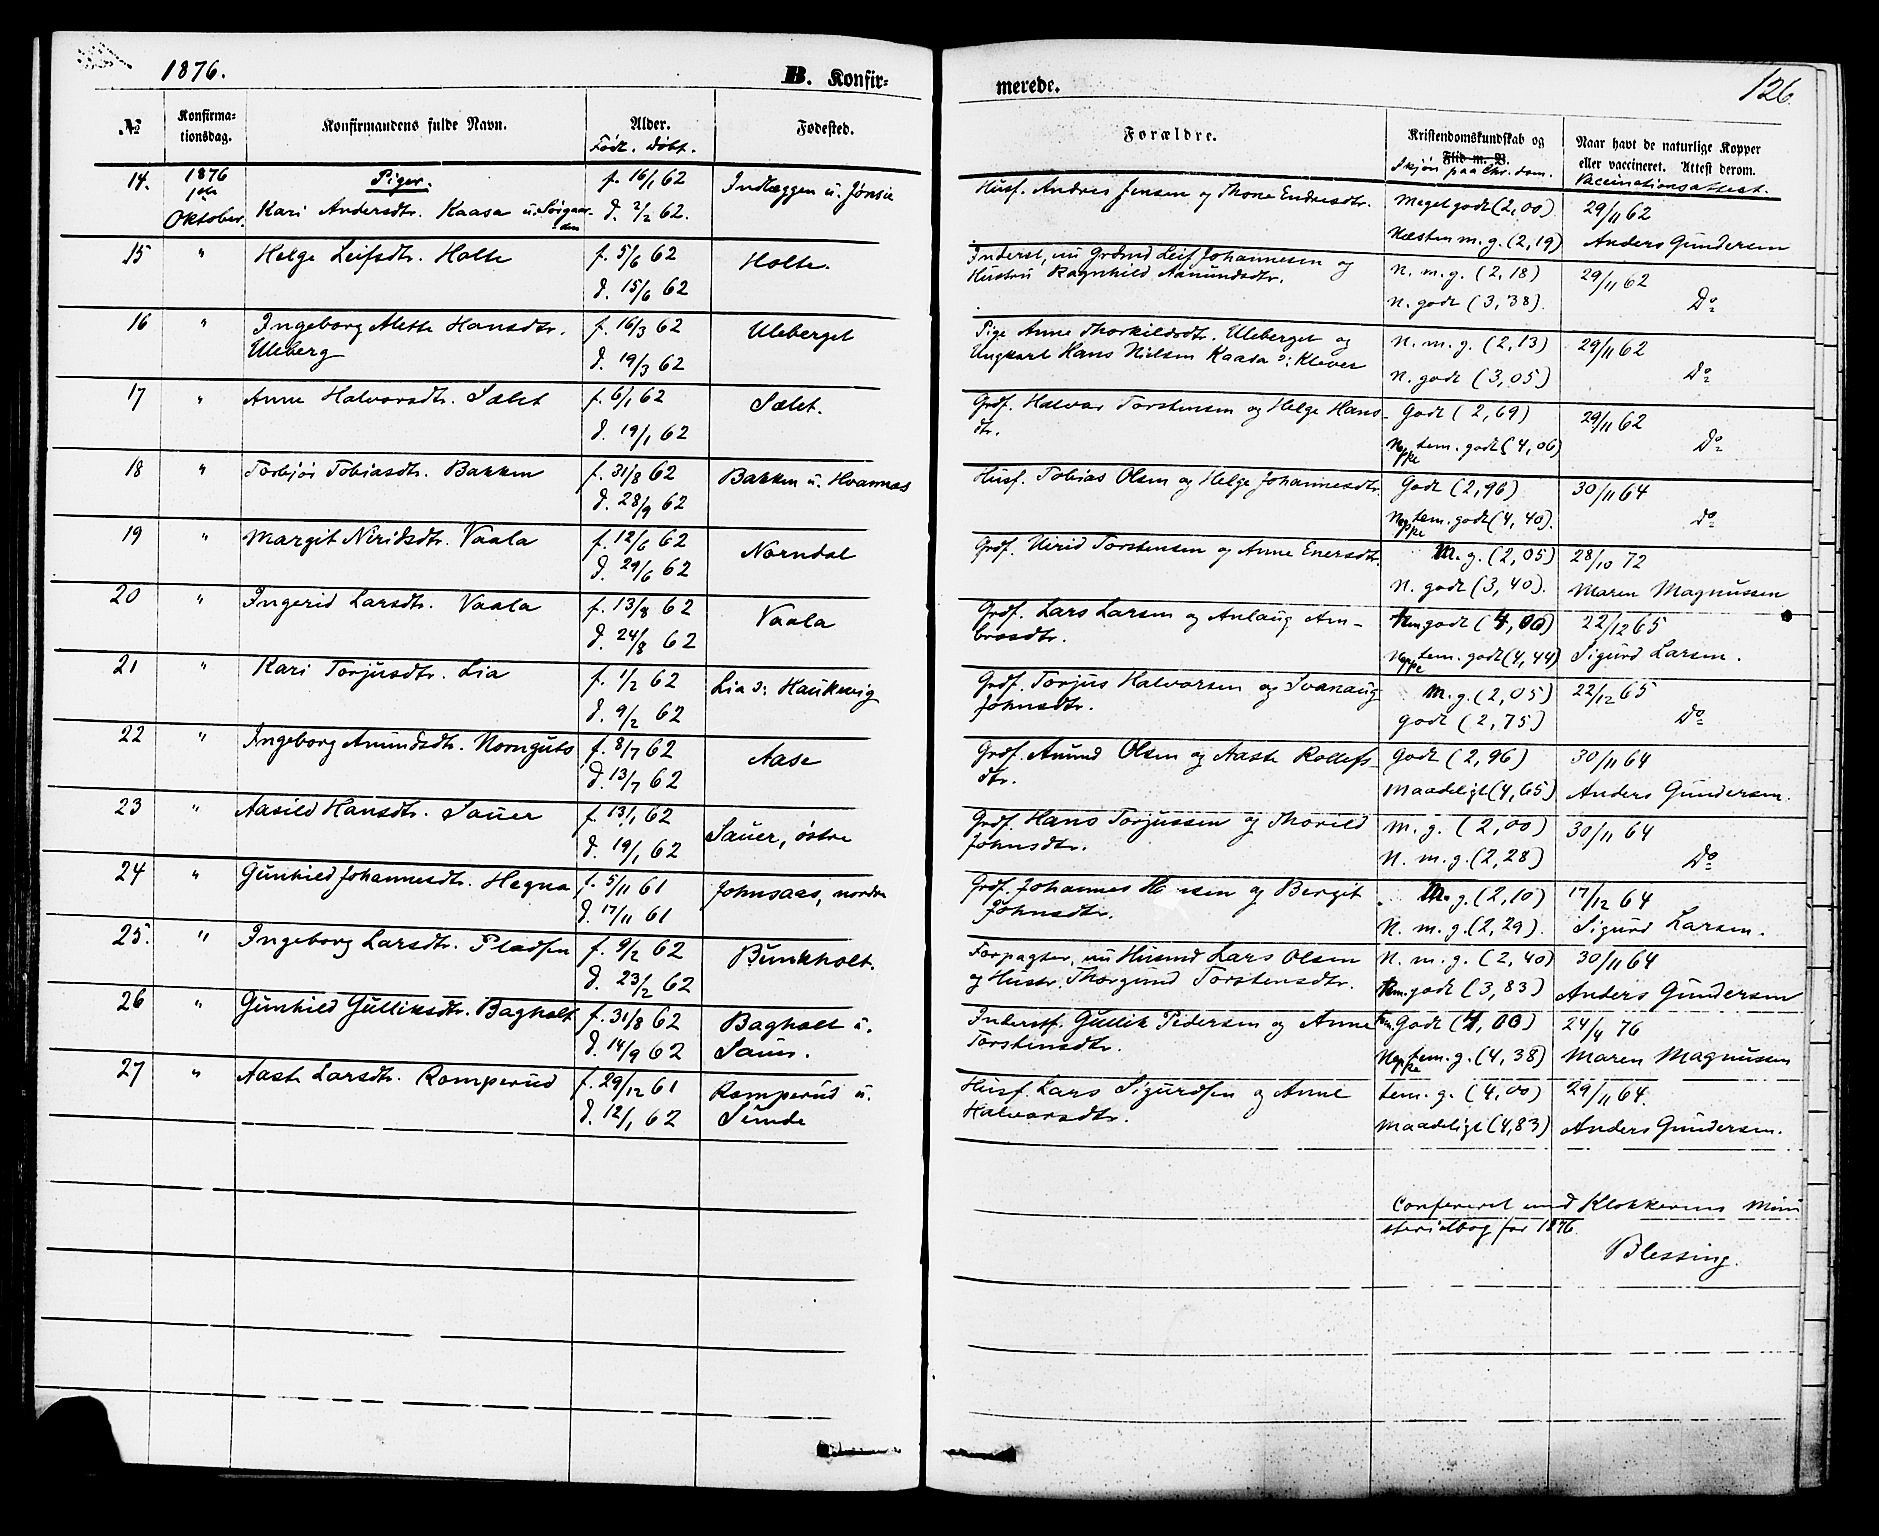 1876.
B. Konfir-
merede.
126.
№
Konfirma-
tionsdag.
Konfirmandens fulde Navn.
Alder.
Født. Døbt.
Fødested.
Forældre.
Kristendomskundskab og
Flid m. V.
Skjøn paa Chr.dom.
Naar havt de naturlige Kopper
eller vaccineret. Attest derom.
Vaccinationsattest.
14. 1876 Piger. f. 16/1 62 Indlæggen u. Jønsie Husf. Andres Jensen og Thone Endresdtr. Meget godt (2,00). 29/11 62
1ste Oktober. Kari Andersdtr. Kaasa u. Sørgaarden d. 2/2 62. Næsten m. g. (2,19) Anders Gundersen
15 " Helge Leifsdtr. Holte f. 5/6 62 Holte. Inderst, nu Grdmd Leif Johannesen og N. m. g. (2,18) 29/11 62
d. 15/6 62 Hustru Ragnhild Aanundsdtr. N. godt (3,38). Do
16 " Ingeborg Alette Hansdtr. f. 16/3 62 Uleberget Pige Anne Thorkildsdtr. Uleberget og N. m. g. (2,13) 29/11 62
Uleberg d. 19/3 62 Ungkarl Hans Nielsen Kaasa ɔ: Klever N. godt (3,05) Do
17 " Anne Halvorsdtr. Sælet f. 6/1 62 Sælet. Grdf. Halvor Torstensen og Helge Hans- Godt (2,69) 29/11 62
d. 19/1 62 dtr. Neppe tem. godt (4,06) Do
18 " Torbjør Tobiasdtr. Bakken f. 31/8 62 Bakken u. Hvannes Husf. Tobias Olsen og Helge Johannesdtr. Godt (2,96) 30/11 64
d. 28/9 62 Neppe tem. godt (4,40). do
19 " Margit Niridsdtr. Vaala f. 12/6 62 Norndal Grdf. Nirid Torstensen og Anne Enersdtr. M. g. (2,05) 28/10 72
d. 29/6 62 N. godt (3,40). Maren Magnussen
20 " Ingerid Larsdtr. Vaala f. 13/8 62 Vaala Grdf. Lars Larsen og Anlaug Am- tem godt (4,00) 22/12 65
d. 24/8 62 brosdtr. Neppe tem. godt (4,44) Sigurd Larsen.
21 " Kari Torjusdtr. Lia f. 1/2 62 Lia ɔ: Haukevig Grdf. Torjus Halvorsen og Svanaug M. g. (2,05) 22/12 65
d. 9/2 62 Johnsdtr. Godt (2,75) Do
22 " Ingeborg Anundsdtr. Nornguts f. 8/7 62 Aase Grdf. Anund Olsen og Aaste Rollefs- Godt (2,96) 30/11 64
d. 13/7 62 dtr. Maadeligt (4,65) Anders Gundersen.
23 " Aasild Hansdtr. Sauer f. 13/1 62 Sauer, østre Grdf. Hans Torjussen og Thorild M. g. (2,00) 30/11 64
d. 19/1 62 Johnsdtr. N. m. g. (2,28) Do
24 " Gunhild Johannesdtr. Hegna f. 5/11 61 Johnsaas, nordre Grdf. Johannes og Bergit M. g. (2,10) 17/12 64
d. 17/11 61 Johnsdtr. N. m. g. (2,29). Sigurd Larsen.
25. " Ingeborg Larsdtr. Pladsen f. 9/2 62 Bunkholt. Forpagter, nu Husmd Lars Olsen N. m. g. (2,40) 30/11 64
d. 23/2 62 og Hustr. Thorgund Torstensdtr. tem. godt (3,83) Anders Gundersen
26 " Gunhild Gulliksdtr. Bagholt f. 31/8 62 Bagholt u. Inderstf. Gullik Pedersen og Anne tem. Godt (4,00) 24/4 76
d. 14/9 62 Sauer. Torstensdtr. Neppe tem. g. (4,38) Maren Magnussen
27 " Aaste Larsdtr. Romperud f. 29/12 61 Romperud u. Husf. Lars Sigurdsen og Anne tem. g. (4,00) 29/11 64.
d. 12/1 62 Sunde Halvorsdtr. Maadeligt (4,83) Anders Gundersen.
Confereret med Klokkerens Mini
sterialbog for 1876.
Blessing.